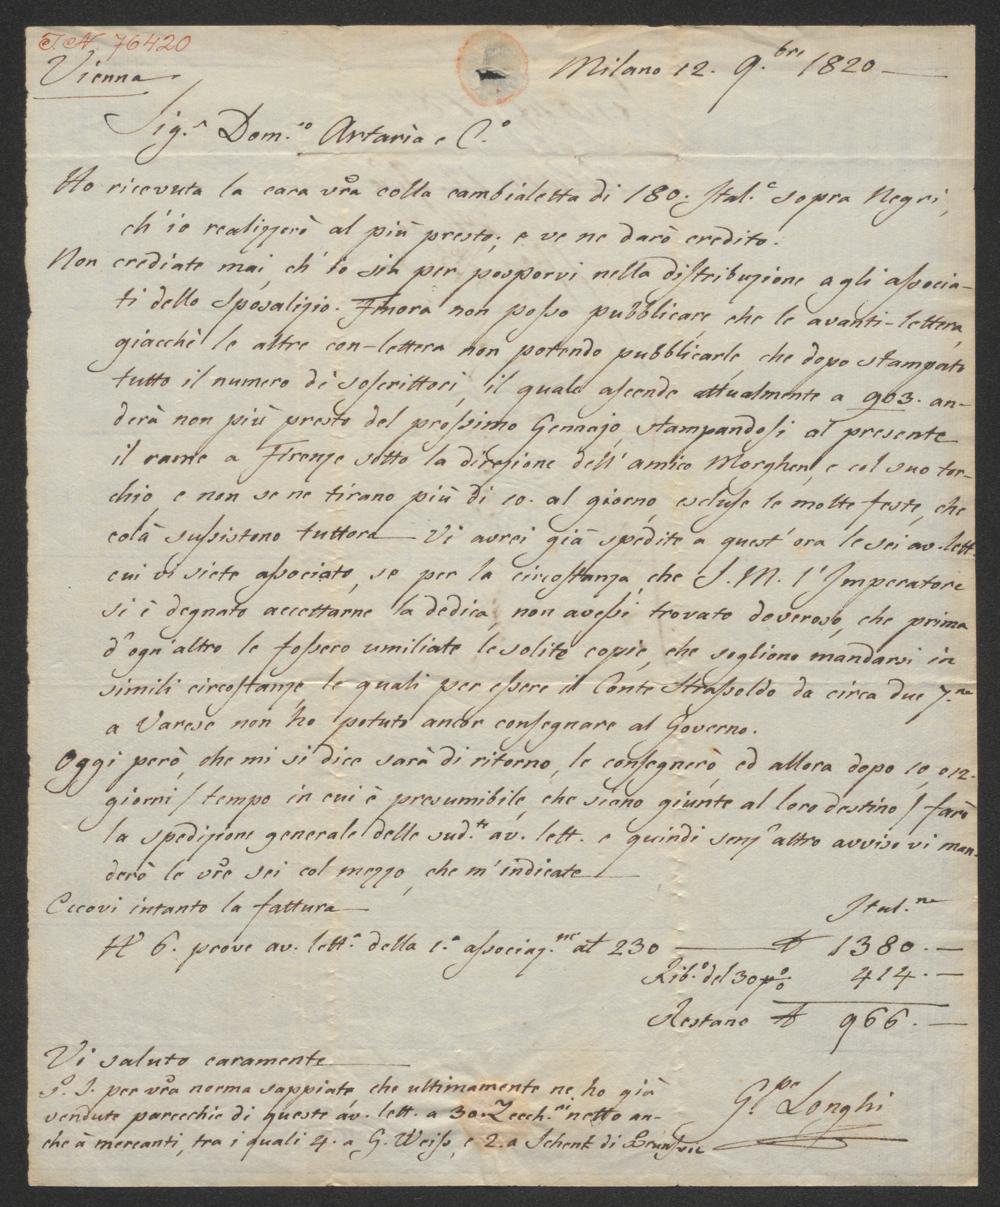 I.N. 76420
Vienna
Milano 12. 9.bre 1820
Sig.r Dom.co Artaria e C.o
Ho ricevuta la cara vr̃a colla cambialetta di 180: Ital.e sopra Negri,
ch'io realizzerò al più presto; e ve ne darò credito.
Non crediate mai, ch'io sia per posporvi nella distribuzione agli associa-
ti dello Sposalizio. Finora non posso pubblicare, che le avanti-lettera,
giacchè le altre con-lettera non potendo pubblicarle, che dopo stampato
tutto il numero de' soscrittori, il quale ascende attualmente a 903. an-
derà non più presto del prossimo Gennajo, stampandosi al presente
il rame a Firenze sotto la direzione dell'amico Morghen, e col suo tor-
chio, e non se ne tirano più di 10. al giorno, escluse le molte feste, che
colà sussistono tuttora. Vi avrei già spedite a quest'ora le sei av. lett.
cui vi siete associato, se per la circostanza, che S. M. l'Imperatore
si è degnato accettarne la dedica, non avessi trovato doveroso, che prima
d'ogn'altro le fossero umiliate le solite copie, che sogliono mandarsi in
simili circostanze, le quali per essere il Conte Strasoldo da circa due 7.ne
a Varese non ho potuto ancor consegnare al Governo.
Oggi però, che mi si dice sarà di ritorno, le consegnerò, ed allora dopo 10 o 12.
giorni / tempo in cui è presumibile, che sieno giunte al loro destino / farò
la spedizione generale delle sud.te av. lett. e quindi senz'altro avviso vi man-
derò le vr̃e sei col mezzo, che m'indicate
Eccovi intanto la fattura
Ital.ne
N.o 6. prove av. lett.a della 1.a associaz.ne at 230 — £ 1380. —
Rib.o del 30 p% 414. —
Restano £ 966. —
Vi saluto caramente
P. S. per vr̃a norma sappiate che ultimamente ne ho già
vendute parecchie di queste av. lett. a 30. Zecch.ni netto an-
che a mercanti, tra i quali 4. a G. Weiss, e 2. a Schenk di Brunsvic
G.pe Longhi